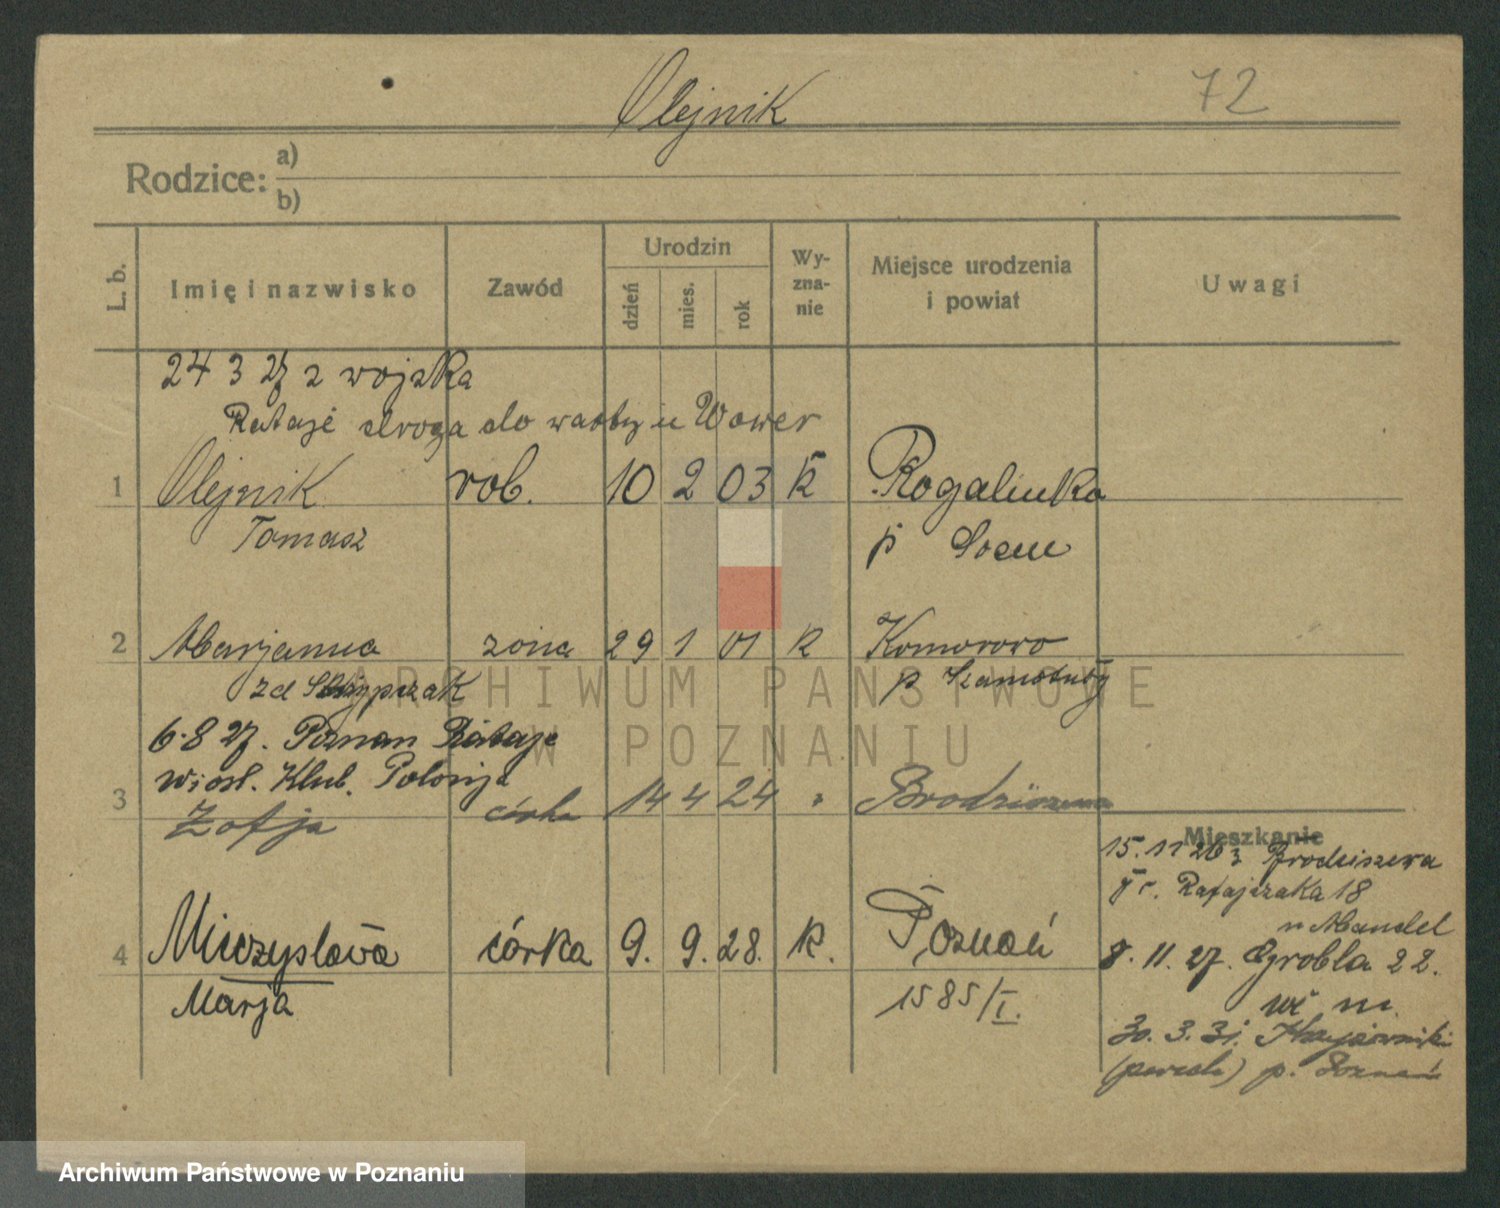 Olejnik
72
Rodzice:
a)
b)
L. b.
Imię i nazwisko
Zawód
Urodzin
dzień
mies.
rok
Wy-
zna-
nie
Miejsce urodzenia
i powiat
Uwagi
24 3 27 z wojska
Rataje droga do Wower
1 Olejnik rob. 10 2 03 k Rogalinka
Tomasz p
2 Marjanna żona 29 1 01 k Komorowo
zd p Szamotuły
6.8 27. Poznan Rataje
wiosl. Klub. Polonja
3 Zofja córka 14 4 24 " Brodziszewo
Mieszkanie
15. 11 26 z Brodziszewa
Ratajczaka 18
u Mandel
4 Mieczysława córka 9. 9. 28. k. Poznań
8. 11. 27. Grobla 22.
Marja
1585/I.
30. 3. 31. Krzyżowniki
p. Poznań
ARCHIWUM PAŃSTWOWE
W POZNANIU
Archiwum Państwowe w Poznaniu